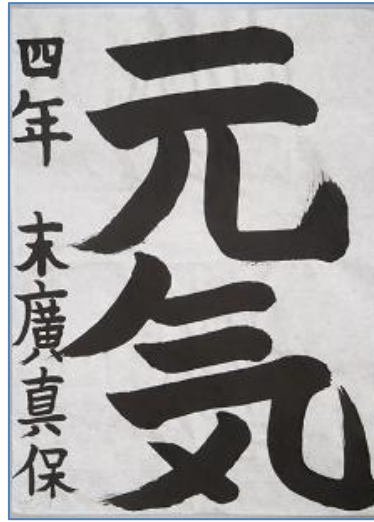 元気
四年 末廣真保